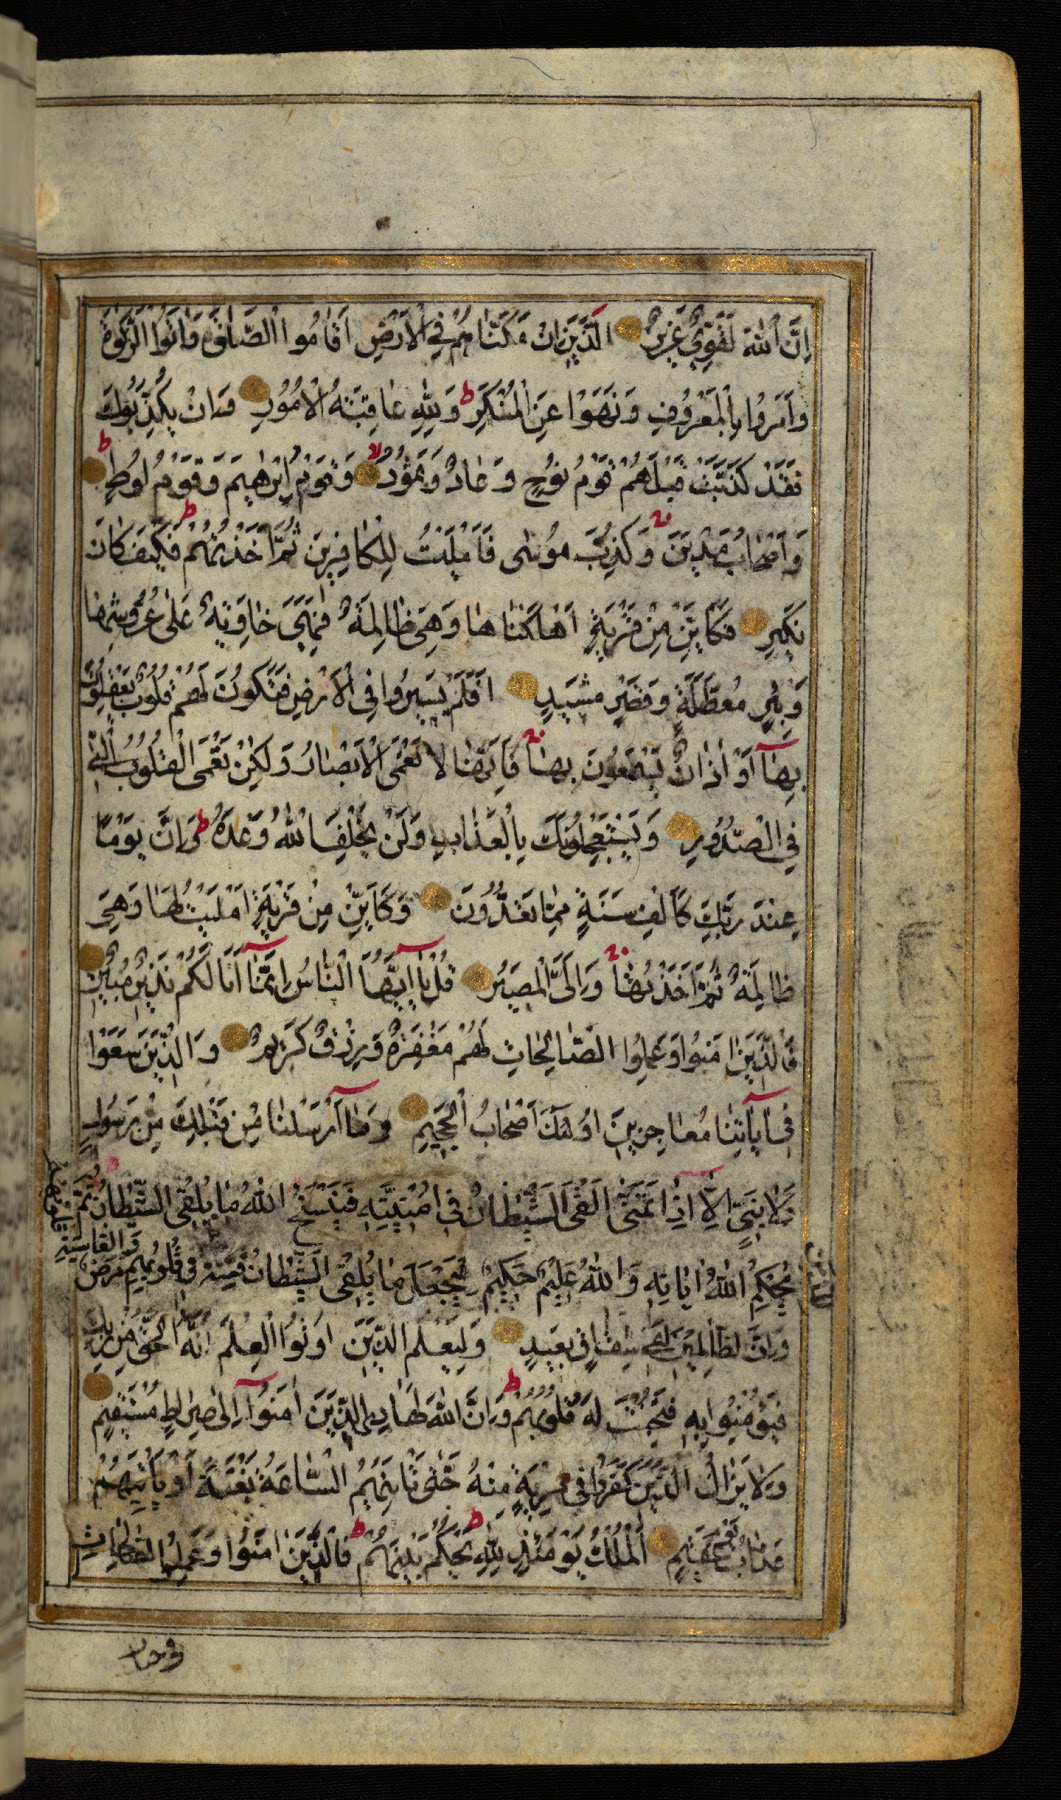 اِنَّ اللّٰهَ لَقَوِىٌّ عَزِيزٌ اَلَّذِينَ اِنْ مَكَّنَّاهُمْ فِى الْاَرْضِ اَقَامُوا الصَّلٰوةَ وَاٰتَوُا الزَّكٰوةَ
وَاَمَرُوا بِالْمَعْرُوفِ وَنَهَوْا عَنِ الْمُنْكَرِ ط وَلِلّٰهِ عَاقِبَةُ الْاُمُورِ وَاِنْ يُكَذِّبُوكَ
فَقَدْ كَذَّبَتْ قَبْلَهُمْ قَوْمُ نُوحٍ وَعَادٌ وَثَمُودُ لا وَقَوْمُ اِبْرٰهِيمَ وَقَوْمُ لُوطٍ ط
وَاَصْحَابُ مَدْيَنَ وَكُذِّبَ مُوسٰى فَاَمْلَيْتُ لِلْكَافِرِينَ ثُمَّ اَخَذْتُهُمْ ط فَكَيْفَ كَانَ
نَكِيرِ فَكَاَيِّنْ مِنْ قَرْيَةٍ اَهْلَكْنَاهَا وَهِىَ ظَالِمَةٌ فَهِىَ خَاوِيَةٌ عَلٰى عُرُوشِهَا
وَبِئْرٍ مُعَطَّلَةٍ وَقَصْرٍ مَشِيدٍ اَفَلَمْ يَسِيرُوا فِى الْاَرْضِ فَتَكُونَ لَهُمْ قُلُوبٌ يَعْقِلُونَ
بِهَآ اَوْ اٰذَانٌ يَسْمَعُونَ بِهَا فَاِنَّهَا لَا تَعْمَى الْاَبْصَارُ وَلٰكِنْ تَعْمَى الْقُلُوبُ الَّتِى
فِى الصُّدُورِ وَيَسْتَعْجِلُونَكَ بِالْعَذَابِ وَلَنْ يُخْلِفَ اللّٰهُ وَعْدَهُ ط وَاِنَّ يَوْمًا
عِنْدَ رَبِّكَ كَاَلْفِ سَنَةٍ مِمَّا تَعُدُّونَ وَكَاَيِّنْ مِنْ قَرْيَةٍ اَمْلَيْتُ لَهَا وَهِىَ
ظَالِمَةٌ ثُمَّ اَخَذْتُهَا وَاِلَىَّ الْمَصِيرُ قُلْ يَآ اَيُّهَا النَّاسُ اِنَّمَآ اَنَا لَكُمْ نَذِيرٌ مُبِينٌ
فَالَّذِينَ اٰمَنُوا وَعَمِلُوا الصَّالِحَاتِ لَهُمْ مَغْفِرَةٌ وَرِزْقٌ كَرِيمٌ وَالَّذِينَ سَعَوْا
فِىٓ اٰيَاتِنَا مُعَاجِزِينَ اُولٰئِكَ اَصْحَابُ الْجَحِيمِ وَمَآ اَرْسَلْنَا مِنْ قَبْلِكَ مِنْ رَسُولٍ
وَلَا نَبِىٍّ اِلَّآ اِذَا تَمَنّٰى اَلْقَى الشَّيْطَانُ فِى اُمْنِيَّتِهِ فَيَنْسَخُ اللّٰهُ مَا يُلْقِى الشَّيْطَانُ ثُمَّ
يُحْكِمُ اللّٰهُ اٰيَاتِهِ وَاللّٰهُ عَلِيمٌ حَكِيمٌ لِيَجْعَلَ مَا يُلْقِى الشَّيْطَانُ فِتْنَةً فِى قُلُوبِهِمْ مَرَضٌ
وَالْقَاسِيَةِ
وَاِنَّ الظَّالِمِينَ لَفِى شِقَاقٍ بَعِيدٍ وَلِيَعْلَمَ الَّذِينَ اُوتُوا الْعِلْمَ اَنَّهُ الْحَقُّ مِنْ رَبِّكَ
فَيُؤْمِنُوا بِهِ فَتُخْبِتَ لَهُ قُلُوبُهُمْ ط وَاِنَّ اللّٰهَ لَهَادِ الَّذِينَ اٰمَنُوآ اِلٰى صِرَاطٍ مُسْتَقِيمٍ
وَلَا يَزَالُ الَّذِينَ كَفَرُوا فِى مِرْيَةٍ مِنْهُ حَتّٰى تَاْتِيَهُمُ السَّاعَةُ بَغْتَةً اَوْ يَاْتِيَهُمْ
عَذَابُ يَوْمٍ عَقِيمٍ اَلْمُلْكُ يَوْمَئِذٍ لِلّٰهِ ط يَحْكُمُ بَيْنَهُمْ ط فَالَّذِينَ اٰمَنُوا وَعَمِلُوا الصَّالِحَاتِ
فى جنات